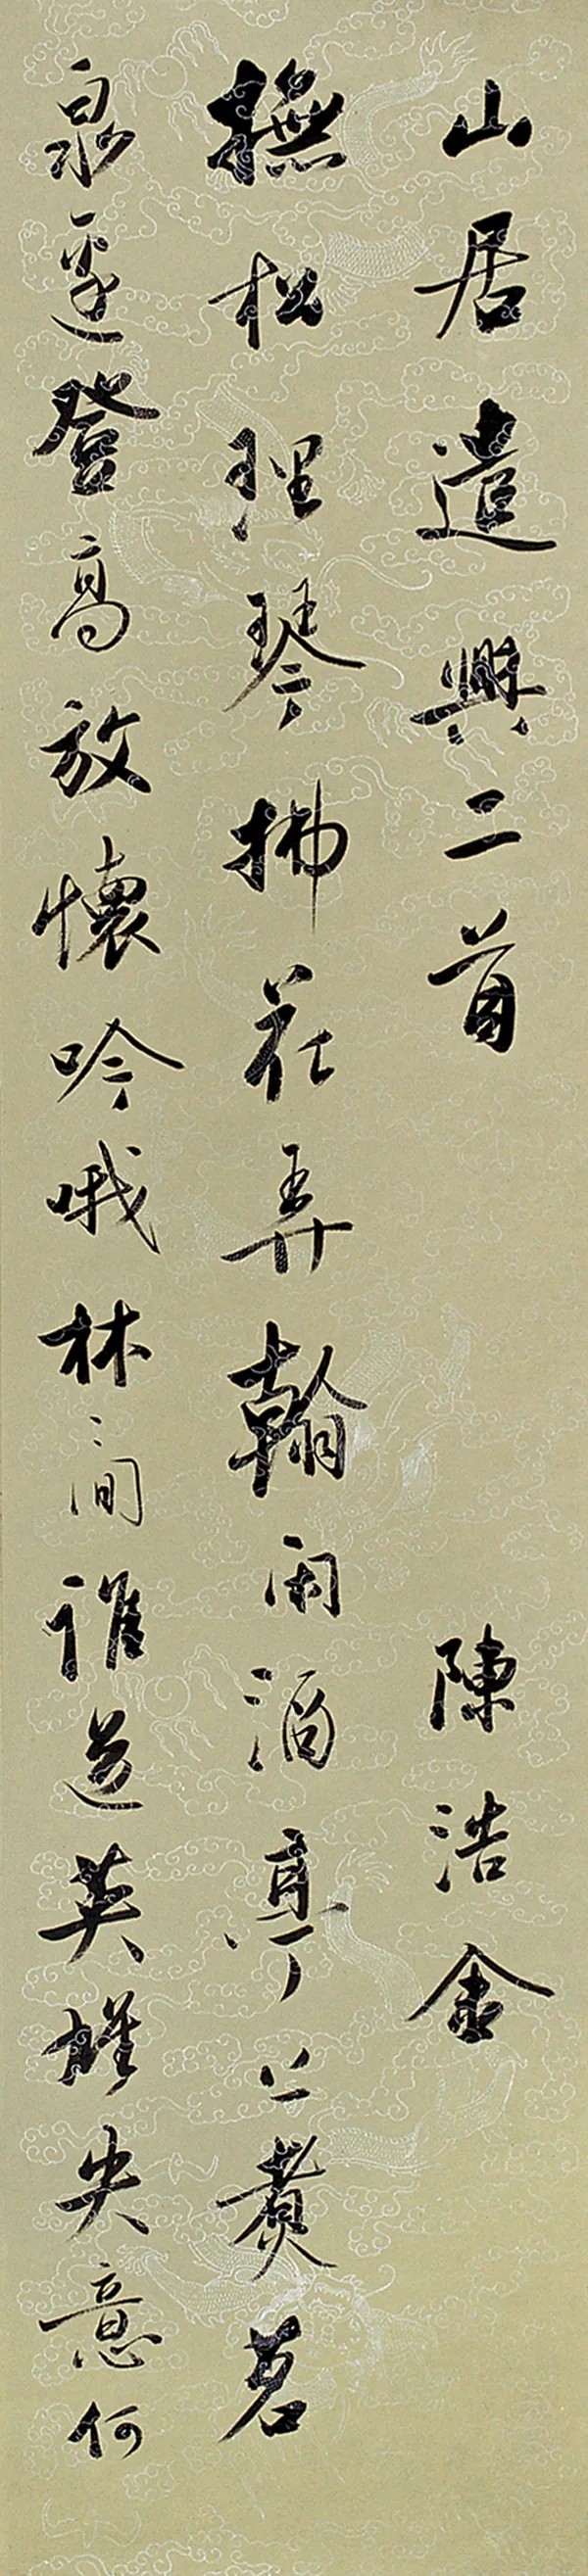 山居遣興二首 陳浩金
撫松理琴拂花弄翰閑泊亭上煮茗
泉邊登高放懷吟哦林間誰道英雄失意何